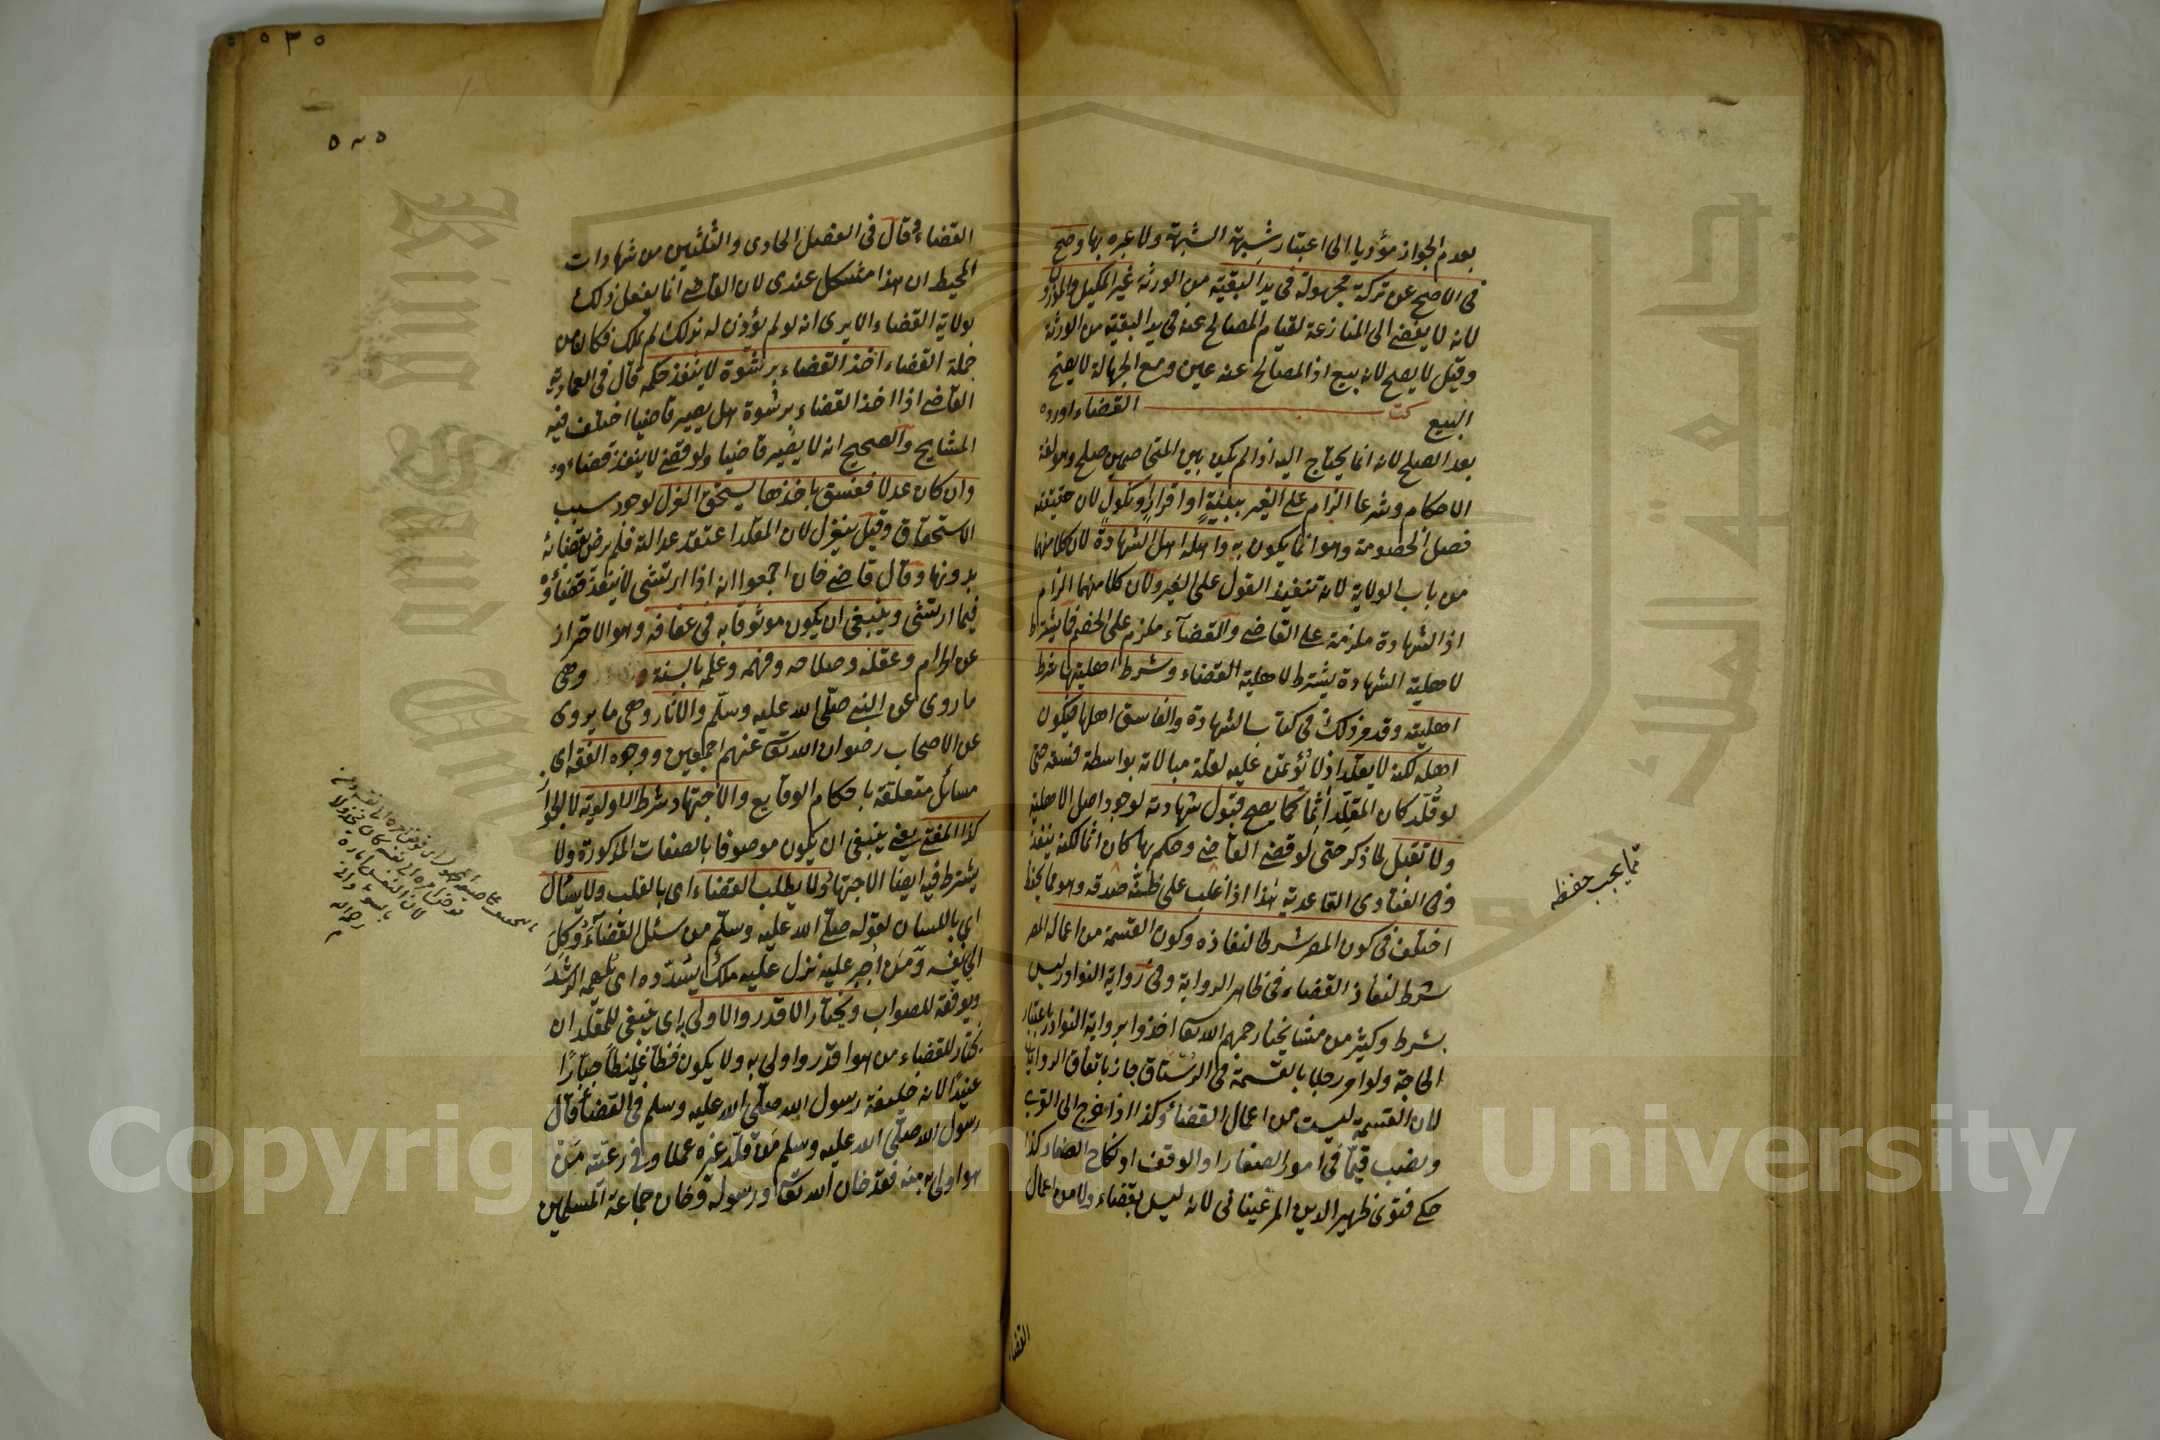 بعدم الجواز مؤديا الى اعتبار شبهة الشبهة ولا عبرة بها وصح
فى الاصح عن تركة مجهولة فى يد البقية من الورثة غير المكيل والموزون
لانه لا يفضى الى المنازعة لقيام المصالح عنه فى يد البقية من الورثة
وقيل لا يصح لانه بيع اذ المصالح عنه عين ومع الجهالة لا يصح
البيع كتاب القضاء اورده
بعد الصلح لانه انما يحتاج اليه اذا لم يكن بين المتخاصمين صلح وهو لغة
الاحكام وشرعا الزام على الغير ببينة او اقرار او نكول لان حقيقته
فصل الخصومة وهو انما يكون به واهله اهل الشهادة لان كلا منهما
من باب الولاية لانه تنفيذ القول على الغير ولان كلا منهما الزام
اذ الشهادة ملزمة على القاضى والقضاء ملزم على الخصم فما يشترط
لاهلية الشهادة يشترط لاهلية القضاء وشرط اهليتها شرط
اهليته وقد مر ذلك فى كتاب الشهادة والفاسق اهلها فيكون
اهله لكنه لا يقلد اذ لا يؤتمن عليه لقلة مبالاته بواسطة فسقه حتى
لو قلد كان المقلد آثما كما يصح قبول شهادته لوجود اصل الاهلية
ولا تقبل لما ذكر حتى لو قضى القاضى وحكم بها كان آثما لكنه ينفذ
وفى الفتاوى القاعدية هذا اذا غلب على ظنه صدقه وهو مما يحفظ
اختلف فى كون المصر شرطا لنفاذه وكون القسمة من اعماله المصر
شرط لنفاذ القضاء فى ظاهر الرواية وفى رواية النوادر ليس
بشرط وكثير من مشايخنا رحمهم الله تعالى اخذوا برواية النوادر باعتبار
الحاجة ولو امر رجلا بالقسمة فى الرستاق جاز باتفاق الروايات
لان القسمة ليست من اعمال القضاء وكذا اذا خرج الى القرى
ونصب قيما فى امور الصغار او الوقف او نكاح الصغار كذا
حكى فتوى ظهير الدين المرغينانى لانه ليس بقضاء ولا من اعمال
مما يجب حفظه
القضاء
٥٣٥
القضاء قال فى الفصل الحادى والثلثين من شهادات
المحيط ان هذا مشكل عندى لان القاضى انما يفعل ذلك
بولاية القضاء الا يرى انه لو لم يؤذن له بذلك لم يملك فكان من
جملة القضاء اخذ القضاء برشوة لا ينفذ حكمه قال فى العمادية
القاضى اذا اخذ القضاء برشوة هل يصير قاضيا اختلف فيه
المشايخ والصحيح انه لا يصير قاضيا ولو قضى لا ينفذ قضاؤه
وان كان عدلا ففسق باخذها يستحق العزل لوجود سبب
الاستحقاق وقيل ينعزل لان المقلد اعتقد عدالته فلم يرض بقضائه
بدونها وقال قاضى خان اجمعوا انه اذا ارتشى لا ينفذ قضاؤه
فيما ارتشى وينبغى ان يكون موثوقا به فى عفافه وهو الاحتراز
عن الحرام وعقله وصلاحه وفهمه وعلمه بالسنة وهى
ما روى عن النبى صلى الله عليه وسلم والآثار وهى ما يروى
عن الاصحاب رضوان الله تعالى عنهم اجمعين ووجوه الفقه اى
مسائل متعلقة باحكام الوقايع والاجتهاد شرط الاولوية لا الجواز
كذا المفتى يعنى ينبغى ان يكون موصوفا بالصفات المذكورة ولا
يشترط فيه ايضا الاجتهاد ولا يطلب القضاء اى بالقلب ولا يسأل
اى باللسان لقوله صلى الله عليه وسلم من سئل القضاء وكل
الى نفسه ومن اجبر عليه نزل عليه ملك يسدده اى يلهمه الرشد
ويوفقه للصواب ويختار الاقدر والاولى به اى ينبغى للمقلد ان
يختار للقضاء من هو اقدر واولى به ولا يكون فظا غليظا جبارا
عنيدا لانه خليفة رسول الله صلى الله عليه وسلم فى القضاء قال
رسول الله صلى الله عليه وسلم من قلد غيره عملا وفى رعيته من
هو اولى به منه فقد خان الله تعالى ورسوله وخان جماعة المسلمين
لان النفس امارة
بالسوء
رحمه الله
Copyright © King Saud University
King Saud University